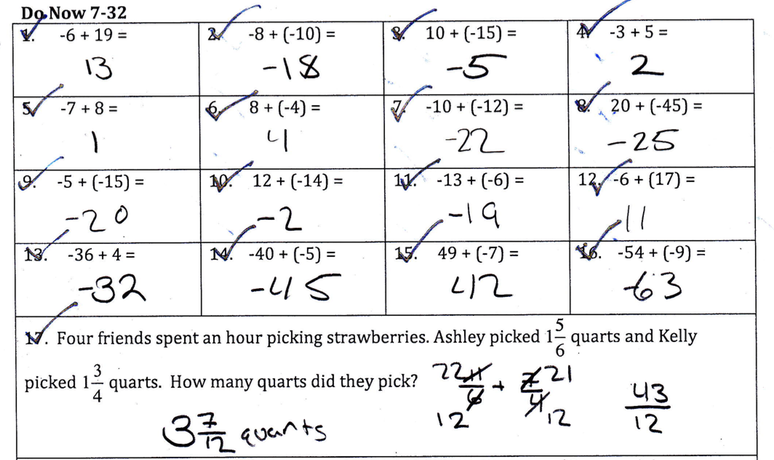 Do Now 7-32
1. -6 + 19 = 2. -8 + (-10) = 3. 10 + (-15) = 4. -3 + 5 =
13 -18 -5 2
5. -7 + 8 = 6. 8 + (-4) = 7. -10 + (-12) = 8. 20 + (-45) =
1 4 -22 -25
9. -5 + (-15) = 10. 12 + (-14) = 11. -13 + (-6) = 12. -6 + (17) =
-20 -2 -19 11
13. -36 + 4 = 14. -40 + (-5) = 15. 49 + (-7) = 16. -54 + (-9) =
-32 -45 42 -63
17. Four friends spent an hour picking strawberries. Ashley picked 1 5/6 quarts and Kelly
picked 1 3/4 quarts. How many quarts did they pick? 22 11/6 12 + 7/4 21 12 43/12
3 7/12 quarts